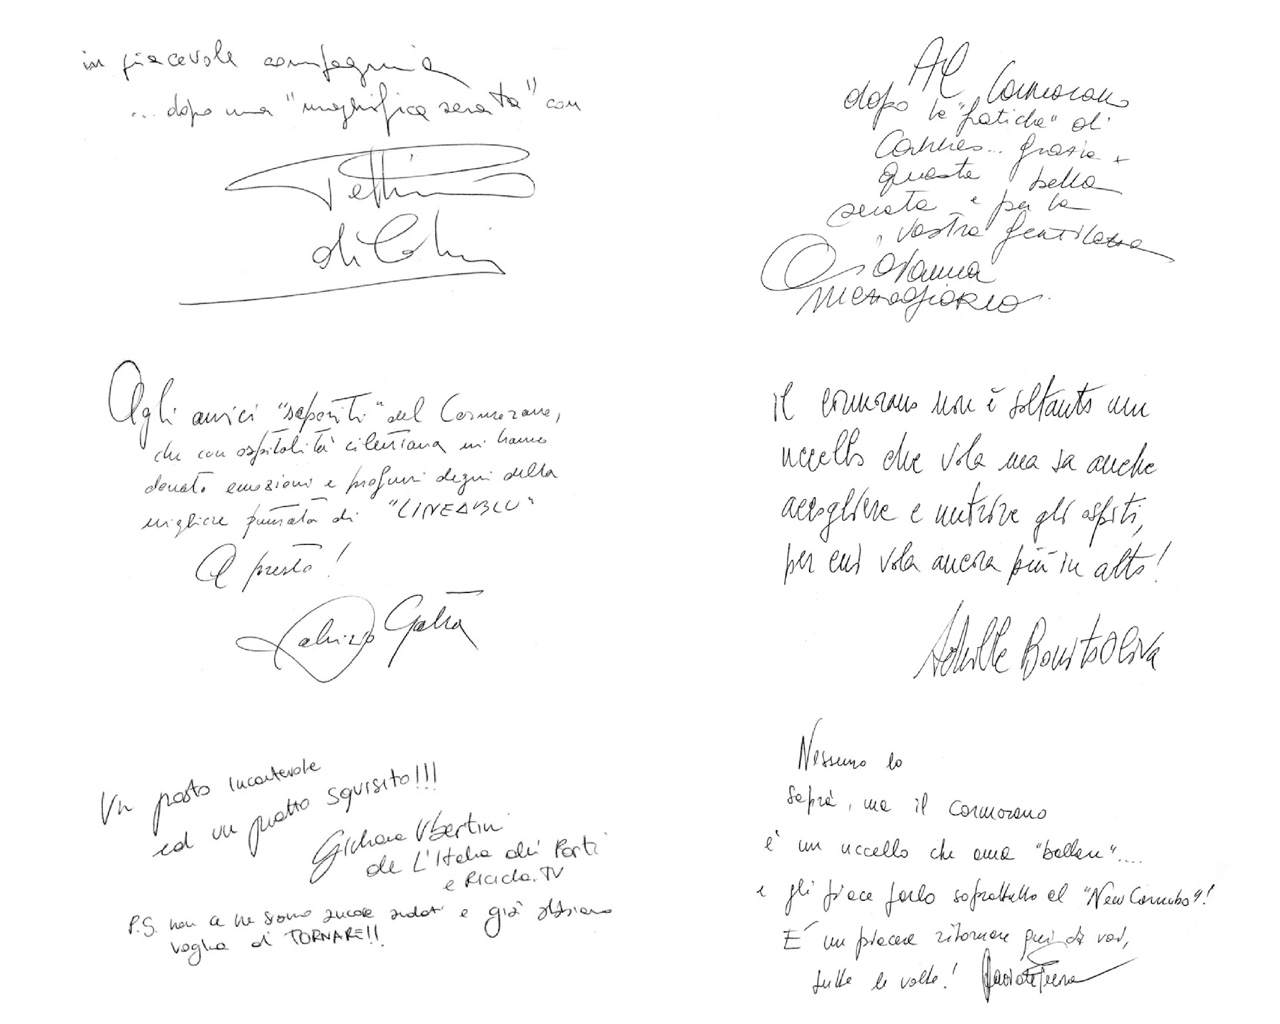 in piacevole compagnia
... dopo una "magnifica serata" con
Al Cormorano
dopo le "fatiche" di
Cannes... grazie x
questa bella
serata e per la
vostra gentilezza
Giovanna
Mezzogiorno
Agli amici "saporiti" del Cormorano,
che con ospitalità cilentana mi hanno
donato emozioni e profumi degni della
migliore puntata di "LINEABLU"
A presto!
Fabrizio Gatta
il cormorano non è soltanto un
uccello che vola ma sa anche
accogliere e nutrire gli ospiti,
per cui vola ancora più in alto!
Achille Bonito Oliva
Un posto incantevole
ed un piatto squisito!!!
Giuliana Ubertini
de L'Italia dei Porti
e Ricicla.TV
P.S. non ce ne siamo ancora andati e già abbiamo
voglia di TORNARE!!
Nessuno lo
saprà, ma il cormorano
è un uccello che ama "ballare"....
e gli piace farlo soprattutto al "New Corumbo"!
E' un piacere ritornare qui da voi,
tutte le volte!